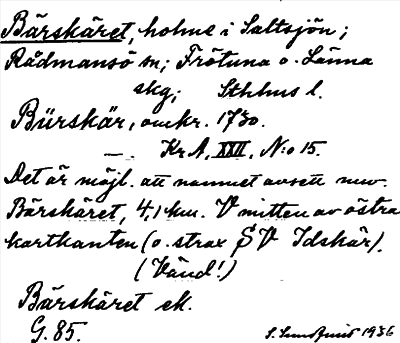 Bärskäret, holme i Saltsjön;
Rådmansö sn; Frötuna o. Länna
skg; Sthlms l.
Bürskär, omkr. 1730.
— Kr A, XXII, N:o 15.
Det är möjl. att namnet avsett nuv.
Bärskäret, 4,1 km. V mitten av östra
kartkanten (o. strax SV Idskär).
(Vänd!)
Bärskäret ek.
G. 85.
S. Sundquist 1936